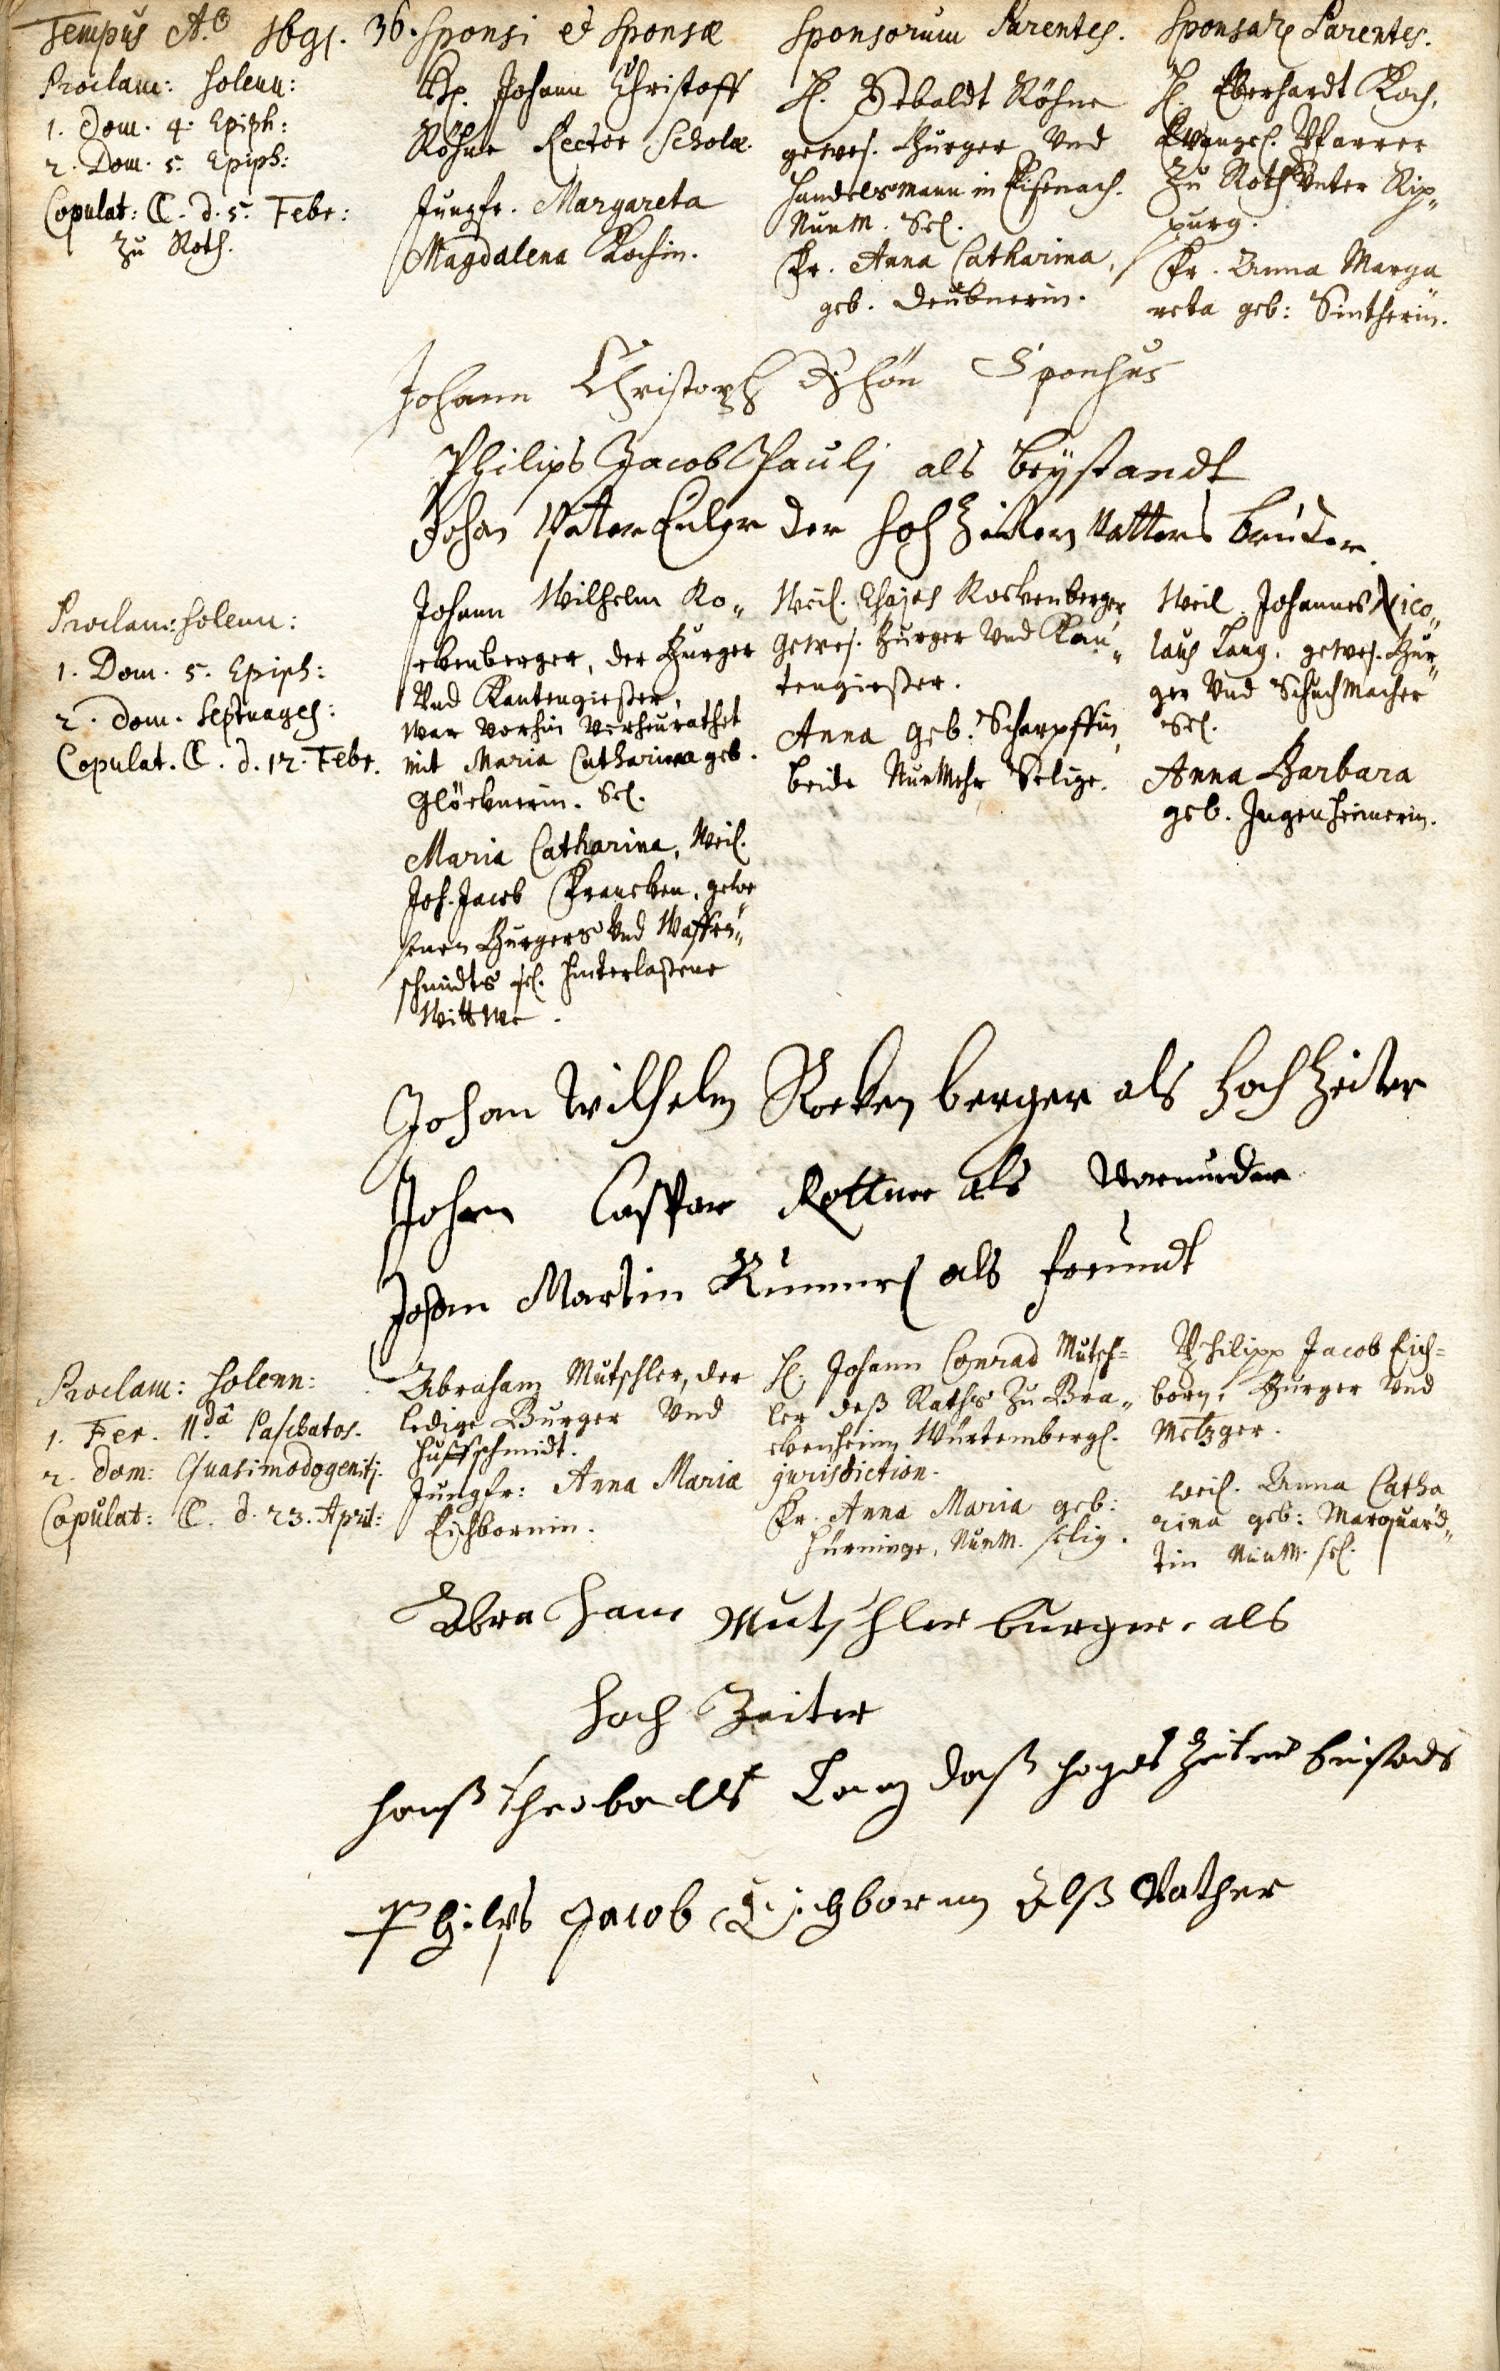 Tempus A.o 1691. 36.
Sponsi et Sponsæ
Sponsorum Parentes.
Sponsar. Parentes.
Proclam: solenn:
1. Dom. 4. Epiph:
2. Dom. 5. Epiph:
Copulat: d. 5. Febr:
Zu Roth.
H. Johann Christoff
Röhne Rector Scholæ.
Jungfr. Margareta
Magdalena Kochin.
H. Sebaldt Röhne
gewes. Burger Vnd
Handelsmann in Eisenach.
NunM. Sel.
Fr. Anna Catharina,
geb. Deubnerin.
H. Eberhardt Koch,
Evangel. Pfarrer
Zu Roth Vnter Rip„
purg.
Fr. Anna Marga
reta geb: Sintherin.
Johann Christoph Sponsus
Philips Jacob Pauli als beÿstandt
Johan Peter der hoch Zeitern Vatters bruder
Proclam: solenn:
1. Dom. 5. Epiph:
2. Dom. Septuages:
Copulat. d. 12. Febr.
Johann Wilhelm Ro„
ckenberger, der Burger
Vnd Kantengießer,
war vorhin Verheurathet
mit Maria Catharina geb.
Glöcknerin. Sel.
Maria Catharina, Weil.
Joh. Jacob Francken, gewe
senen Burgers Vnd Waffen„
schmidts sel. hinterlaßene
Wittwe.
Weil. Esajas Rockenberger
gewes. Burger Vnd Kan„
tengießer.
Anna geb. Scharpffin,
beide NunMehr Selige.
Weil. Johannes Nico„
laus Lang, gewes. Bur„
ger Vnd SchuchMacher
Sel.
Anna Barbara
geb. Ingenheimerin.
Johan Wilhelm Rocken berger als Hoch Zeiter
Johan Caspar Rottner als Vormunder
Johan Martin als freundt
Proclam: solenn:
1. Fer. IIdâ Paschatos.
2. Dom: Quasimodogeniti.
Copulat: d. 23. April:
Abraham Mutschler, der
ledige Burger Vnd
Huffschmidt.
Jungfr: Anna Maria
Eichbornin.
H. Johann Conrad Mutsch=
ler deß Raths Zu Bra„
ckenheim Würtembergl.
jurisdiction.
Fr. Anna Maria geb:
Hürninge, NunM. selig.
Philipp Jacob Eich=
born, Burger Vnd
Metzger.
weil. Anna Catha
rina geb: Marquard„
tin NunM. sel.
Abra ham Mutschler burger als
hoch Zeiter
hanß theobalt Lang daß Zeiters
Philips Jacob Eichborn Alß Vather